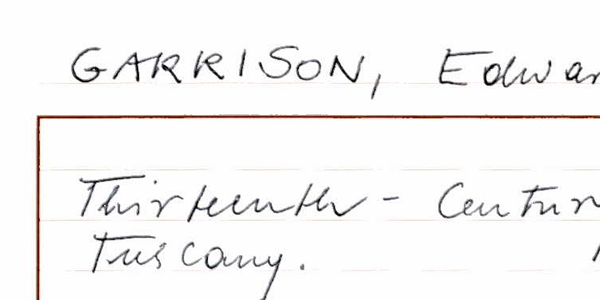 GARRISON, Edwar
Thirteenth - Centur
Tuscany.